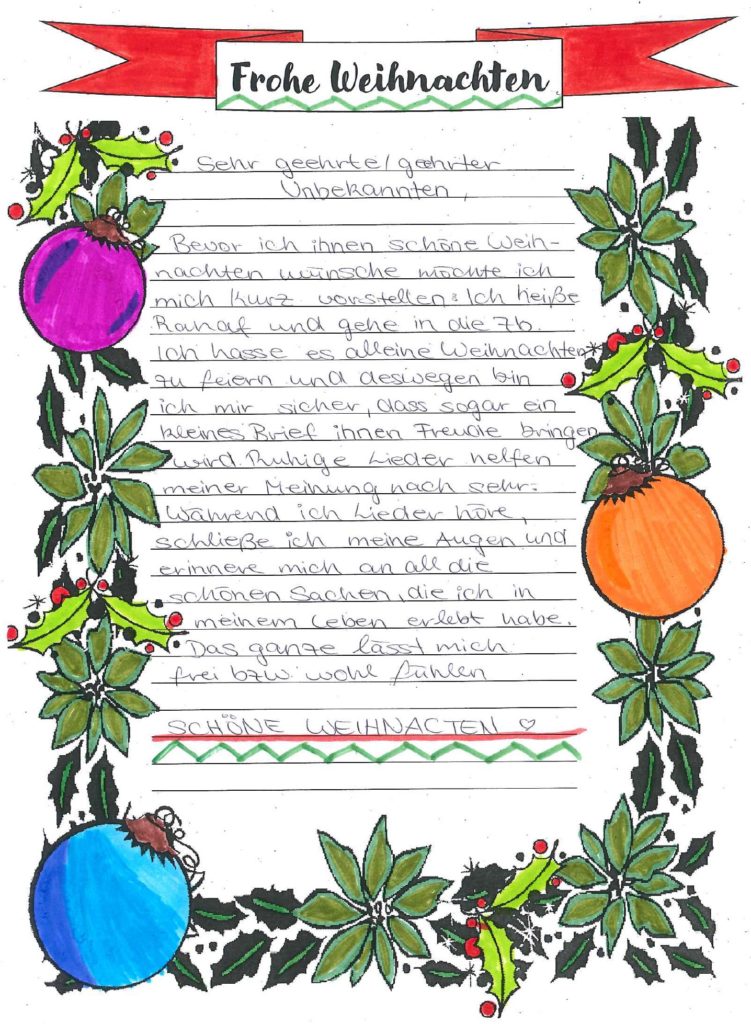 Frohe Weihnachten
Sehr geehrte/geehrter
Unbekannten,
Bevor ich ihnen schöne Weih-
nachten wünsche möchte ich
mich kurz vorstellen: Ich heiße
und gehe in die 7b.
Ich hasse es alleine Weihnachten
zu feiern und deswegen bin
ich mir sicher, dass sogar ein
kleines Brief ihnen Freude bringen
wird. Ruhige Lieder helfen
meiner Meinung nach sehr.
Während ich Lieder höre,
schließe ich meine Augen und
erinnere mich an all die
schönen Sachen, die ich in
meinem Leben erlebt habe.
Das ganze lässt mich
frei bzw. wohl fühlen
SCHÖNE WEIHNACTEN ♡